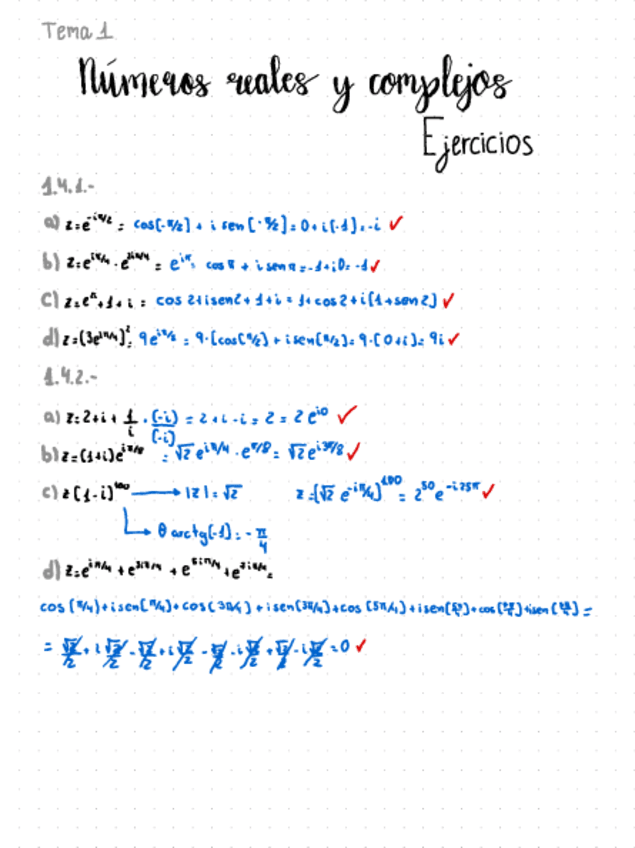 Tema 1
Números reales y complejos
Ejercicios
1.4.1.-
a) z=e^{-iπ/2} = cos[-π/2] + i sen[-π/2] = 0+i[-1] = -i ✓
b) z=e^{iπ/4} · e^{3iπ/4} = e^{iπ} = cos π + i sen π = -1+i0 = -1 ✓
c) z=e^{2i}+1+i = cos 2+isen2+1+i = 1+cos2+i[1+sen2] ✓
d) z=(3e^{iπ/4})^2 = 9e^{iπ/2} = 9·[cos[π/2] + isen[π/2] = 9·[0+i] = 9i ✓
1.4.2.-
a) z=2+i+ 1/i · (-i)/(-i) = 2+i-i = 2 = 2e^{i0} ✓
b) z=(1+i)e^{iπ/8} = √2 e^{iπ/4} · e^{π/8} = √2 e^{i3π/8} ✓
c) z(1-i)^{100} → |z| = √2 z=[√2 e^{-iπ/4}]^{100} = 2^{50} e^{-i25π} ✓
↳ θ arctg(-1) = -π/4
d) z=e^{iπ/4} + e^{3iπ/4} + e^{5iπ/4} + e^{7iπ/4} =
cos[π/4]+isen[π/4]+cos[3π/4]+isen[3π/4]+cos[5π/4]+isen[5π/4]+cos[7π/4]+isen[7π/4] =
= √2/2 + i√2/2 - √2/2 + i√2/2 - √2/2 - i√2/2 + √2/2 - i√2/2 = 0 ✓